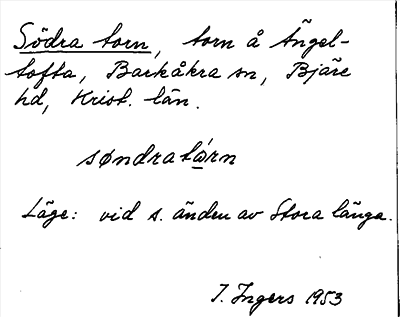 Södra torn, torn å Ängel-
tofta, Barkåkra sn, Bjäre
hd, Krist. län.
søndratǻrn
Läge: vid s. änden av Stora länga.
I. Ingers 1953